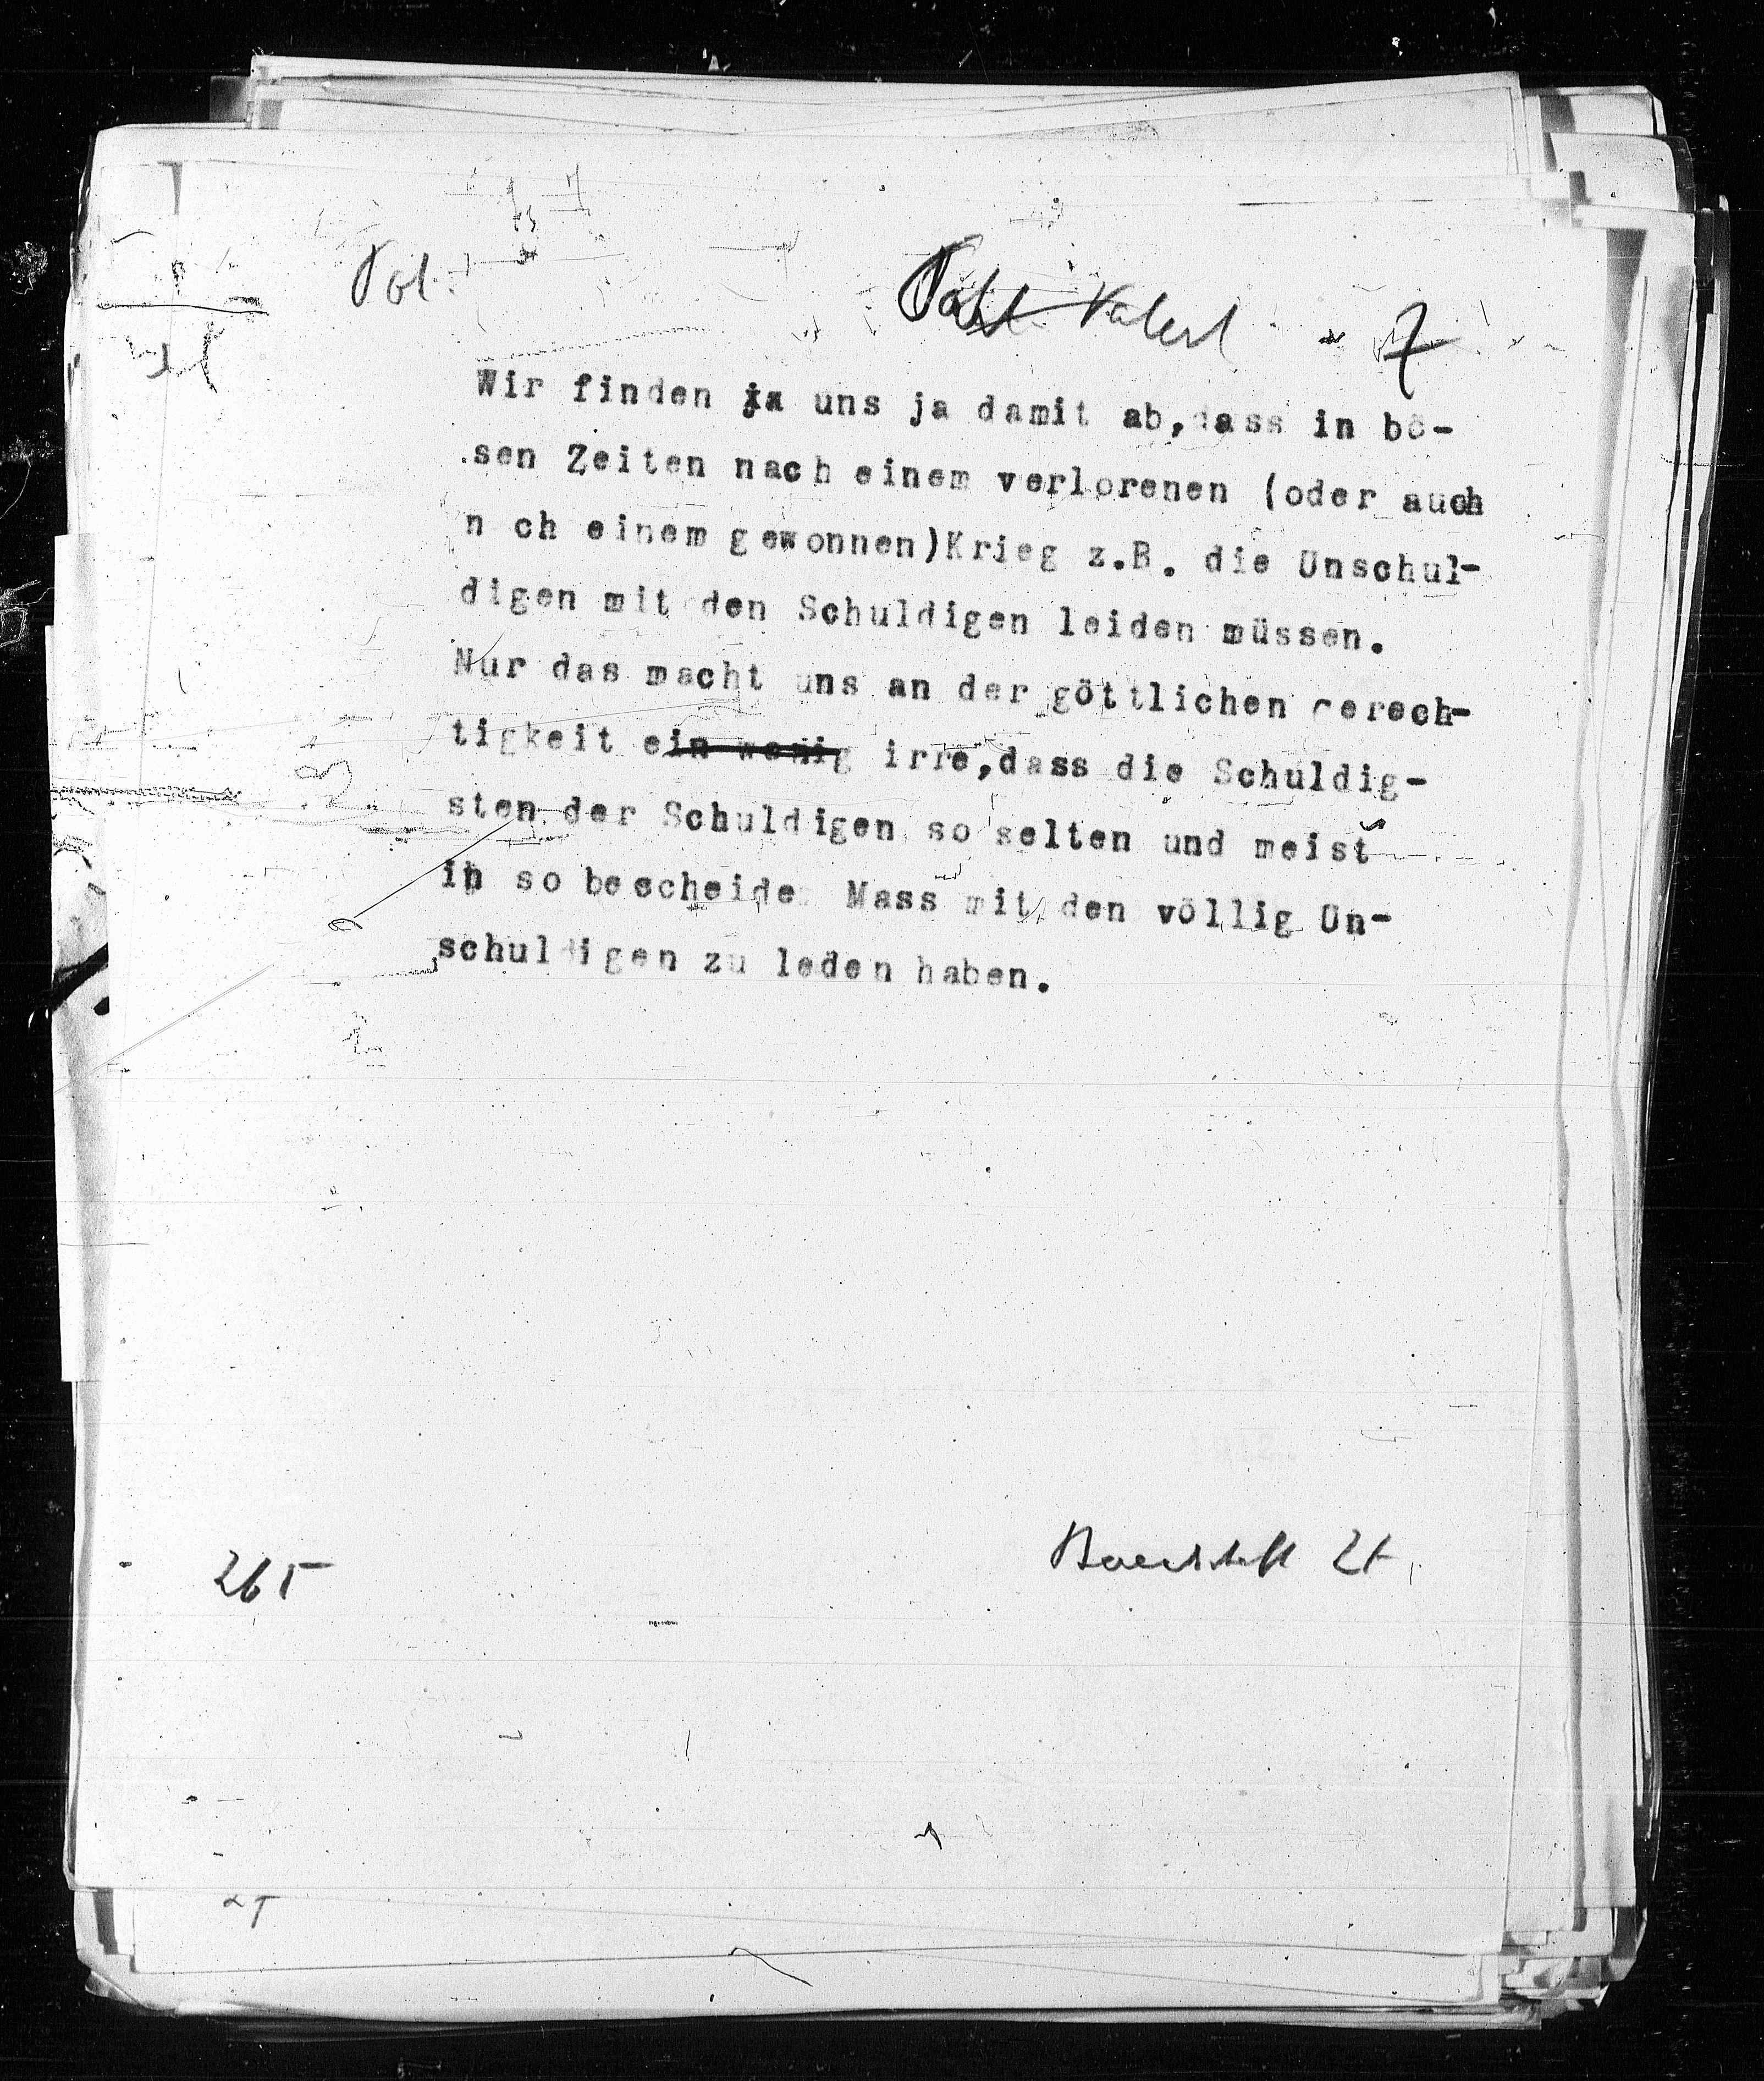 Pol.
7
Wir finden ja uns ja damit ab,dass in bö-
sen Zeiten nach einem verlorenen (oder auch
n ch einem gewonnen)Krieg z.B. die Unschul-
digen mit den Schuldigen leiden müssen.
Nur das macht uns an der göttlichen Gerech-
tigkeit ein wenig irre,dass die Schuldig-
sten der Schuldigen so selten und meist
in so bescheide Mass mit den völlig Un-
schuldigen zu leden haben.
265